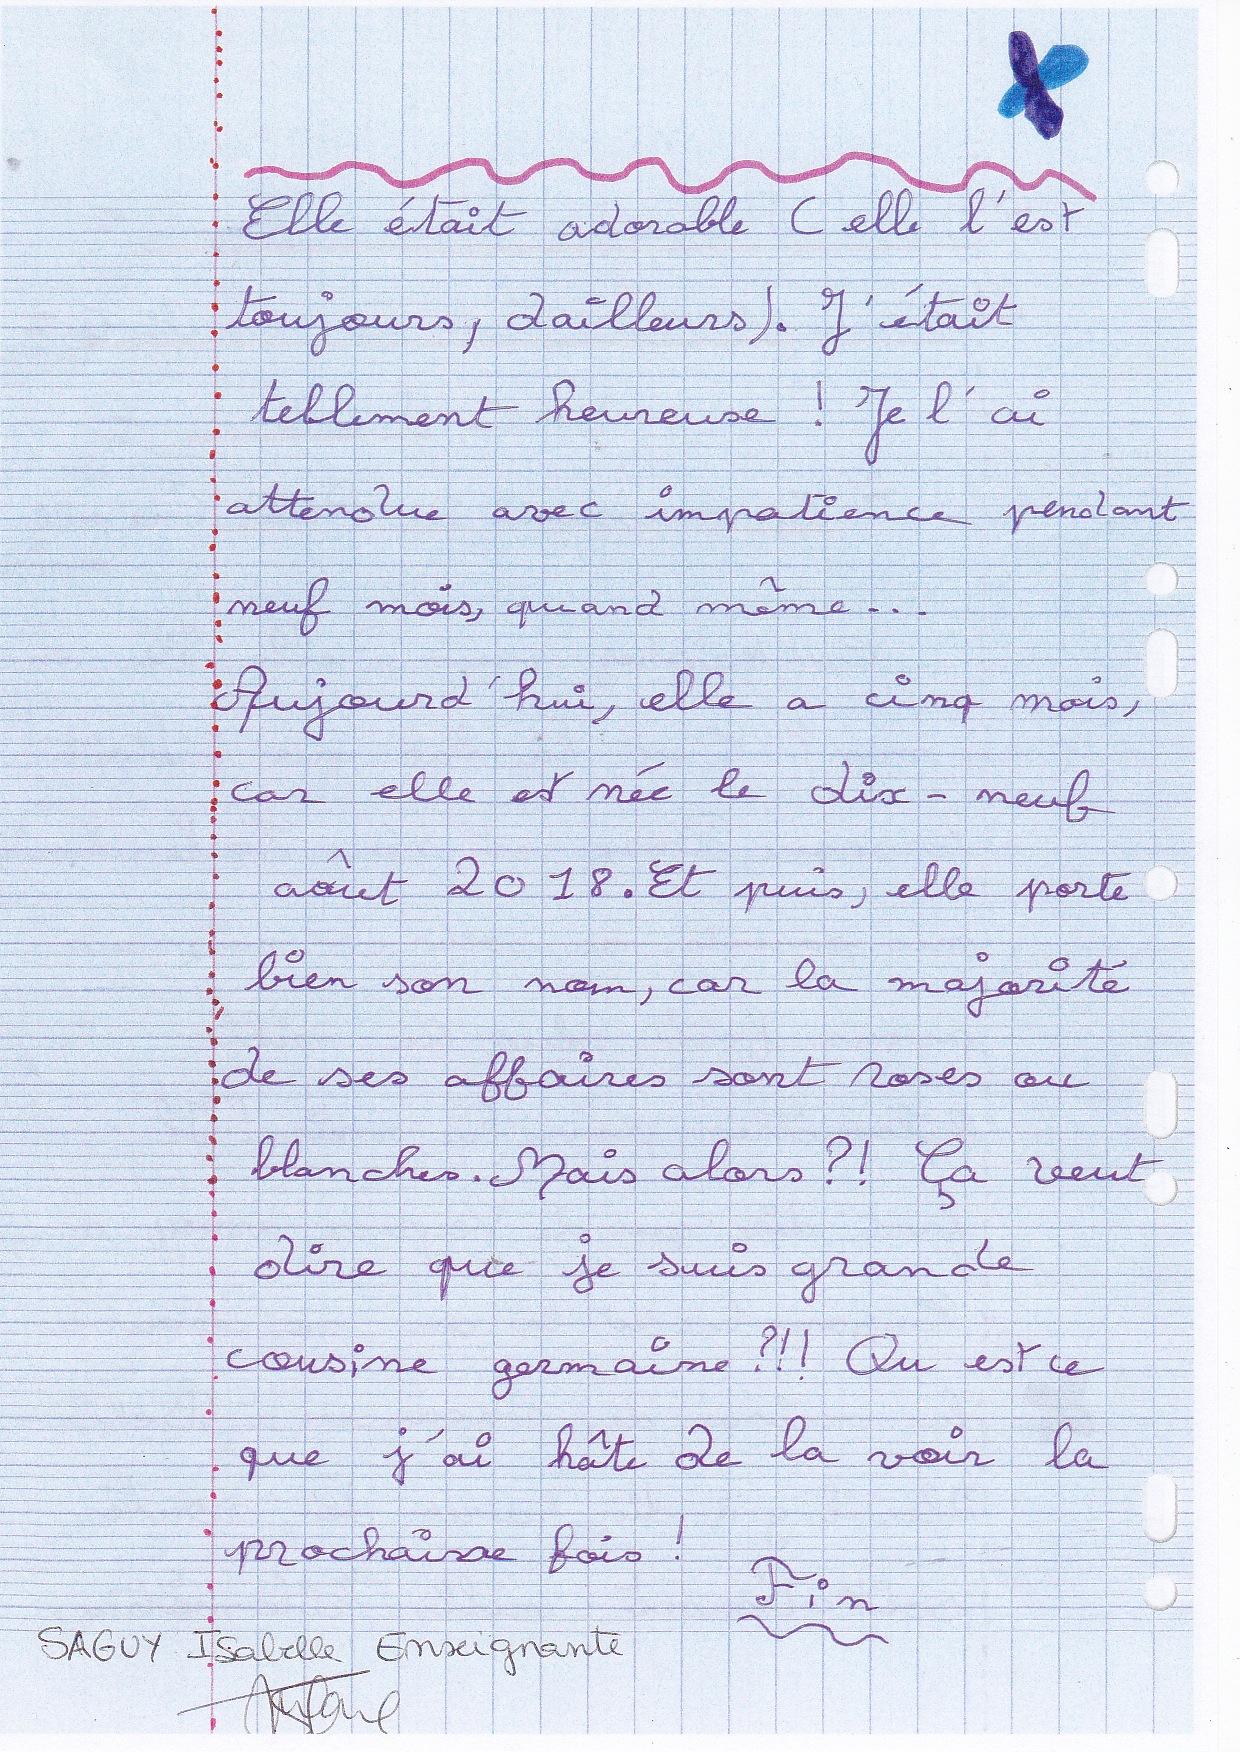 Elle était adorable (elle l'est
toujours, dailleurs). J'était
tellement heureuse ! Je l'ai
attendue avec impatience pendant
neuf mois, quand même...
Aujourd'hui, elle a cinq mois,
car elle est née le dix-neuf
août 2018. Et puis, elle porte
bien son nom, car la majorité
de ses affaires sont roses ou
blanches. Mais alors ?! Ça veut
dire que je suis grande
cousine germaine ?!!! Qu est ce
que j'ai hâte de la voir la
prochaine fois !
Fin
SAGUY Isabelle Enseignante